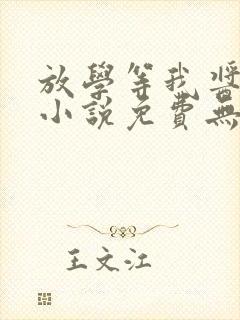 放學等我醬
小說免費無
王文江